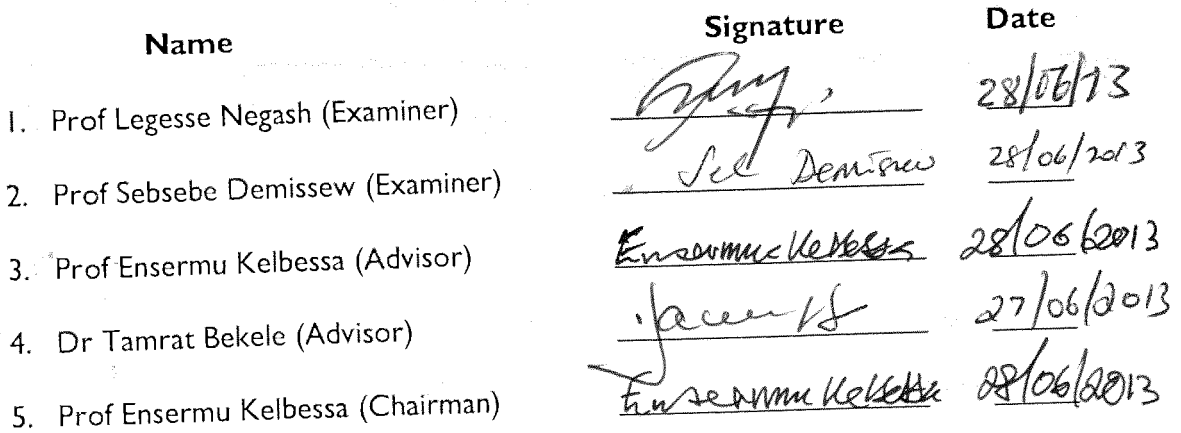 Name Signature Date
1. Prof Legesse Negash (Examiner) 28/06/13
2. Prof Sebsebe Demissew (Examiner) Seb Demissew 28/06/2013
3. Prof Ensermu Kelbessa (Advisor) Ensermu Kelbessa 28/06/2013
4. Dr Tamrat Bekele (Advisor) 27/06/2013
5. Prof Ensermu Kelbessa (Chairman) Ensermu Kelbessa 28/06/2013